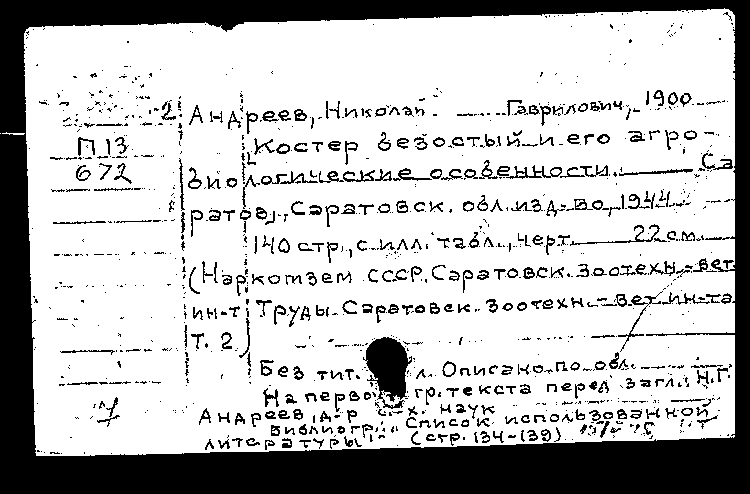 2 Андреев, Николай Гаврилович, 1900
П13
672
Костер безостый и его агро-
биологические особенности. Са
ратов, Саратовск. обл. изд-во, 1944
140 стр., с илл. табл., черт. 22 см.
(Наркомзем СССР. Саратовск. зоотехн.-вет.
ин-т Труды Саратовск. зоотехн.-вет. ин-та
Т. 2)
Без тит. л. Описано по обл.
На перво гр. текста перед загл.: Н.Г.
Андреев, д-р с.-х. наук
Библиогр.: "Список использованной
литературы" (стр. 134-139)